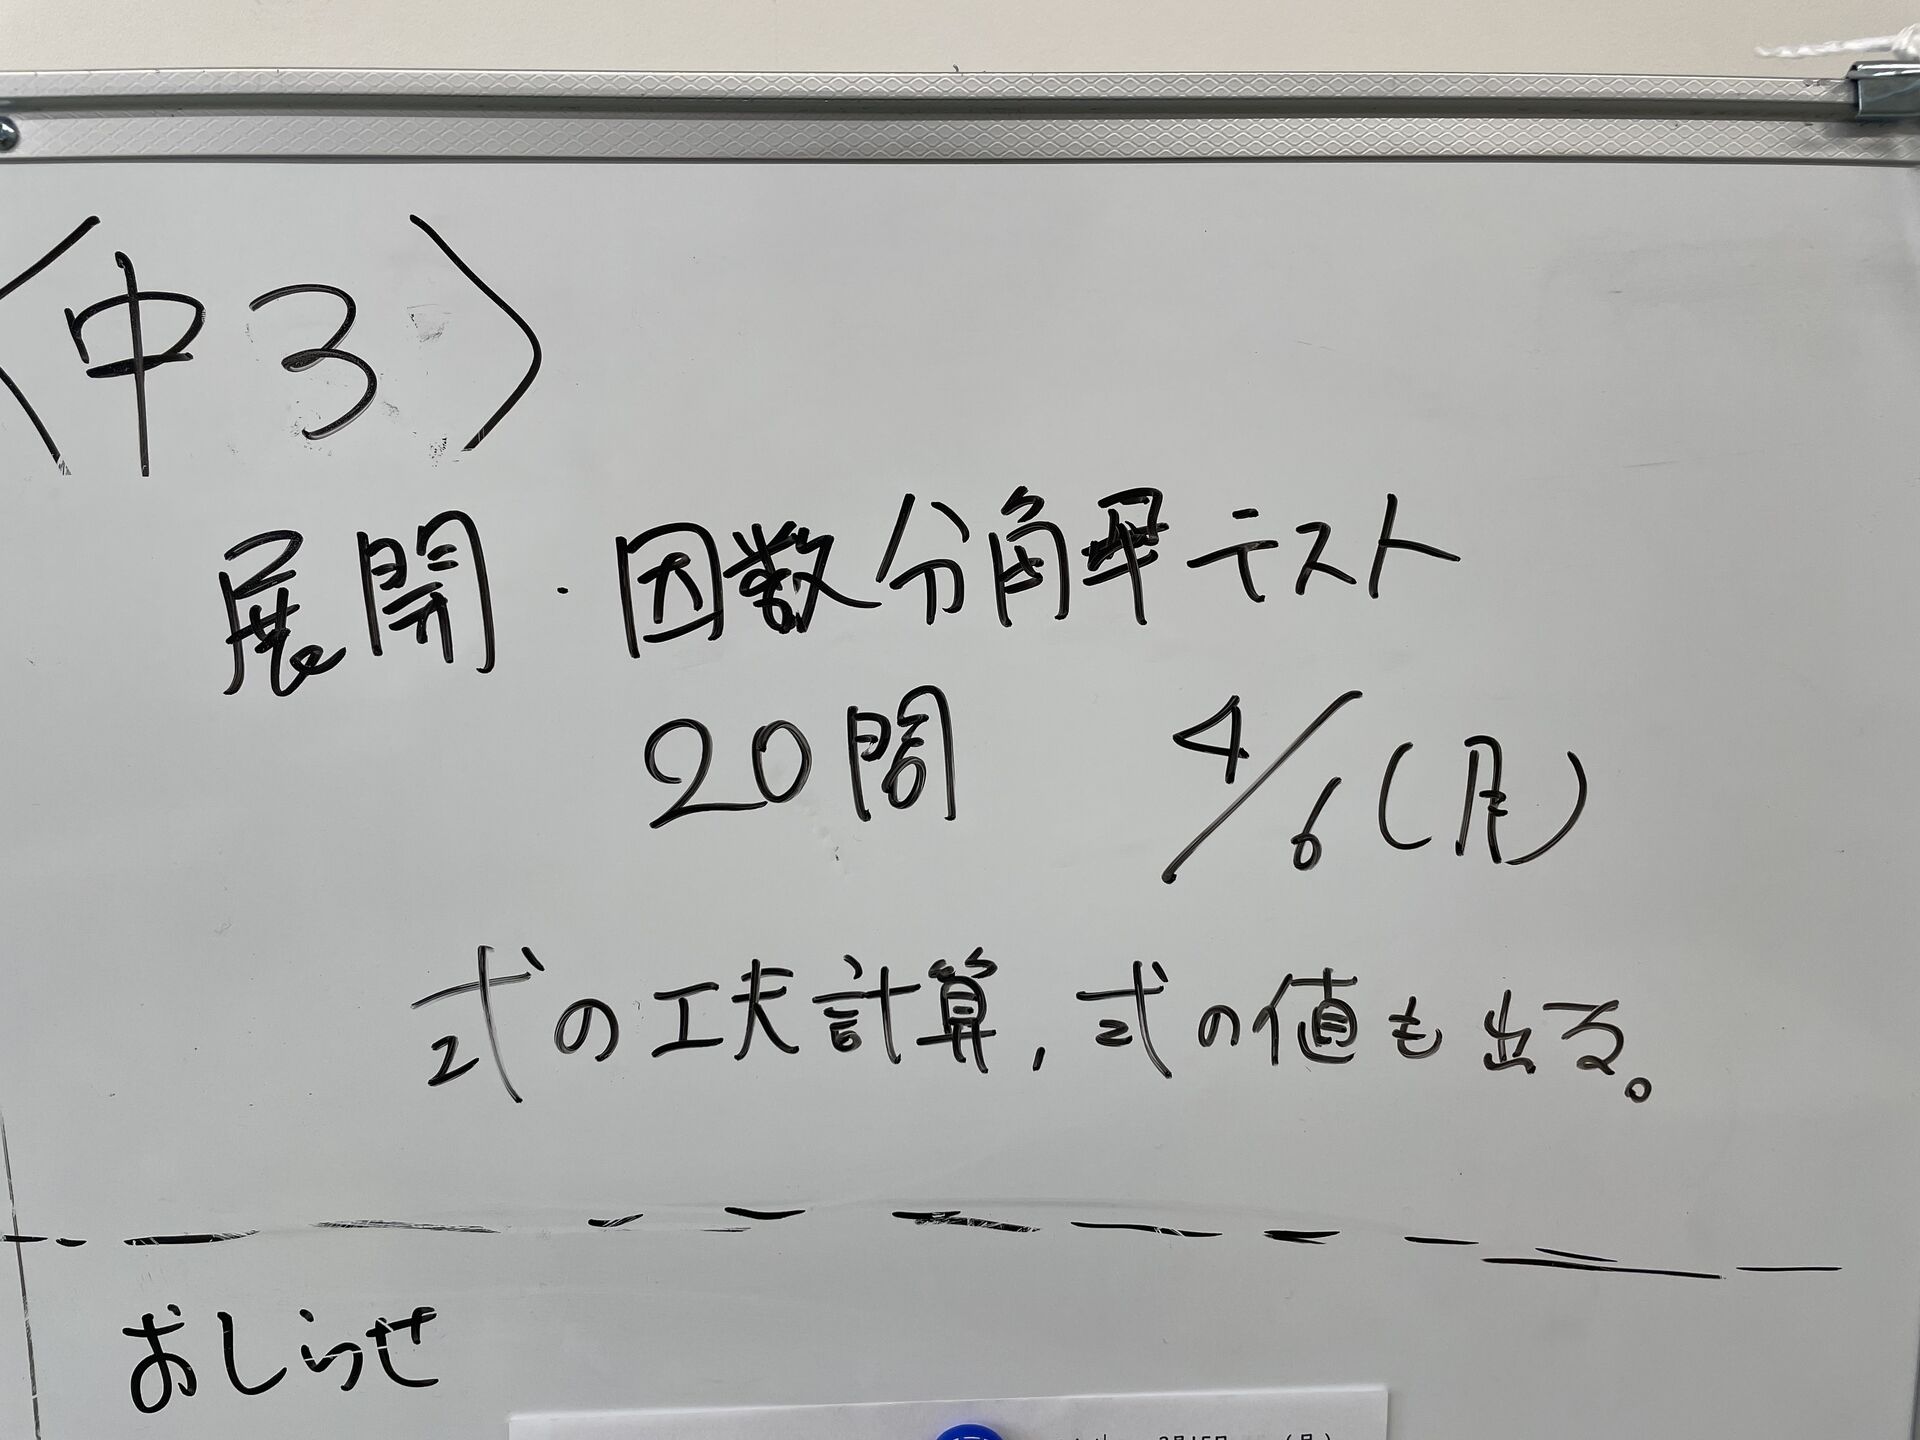 〈中3〉
展開・因数分解テスト
20問 4/6(月)
式の工夫計算,式の値も出る。
おしらせ